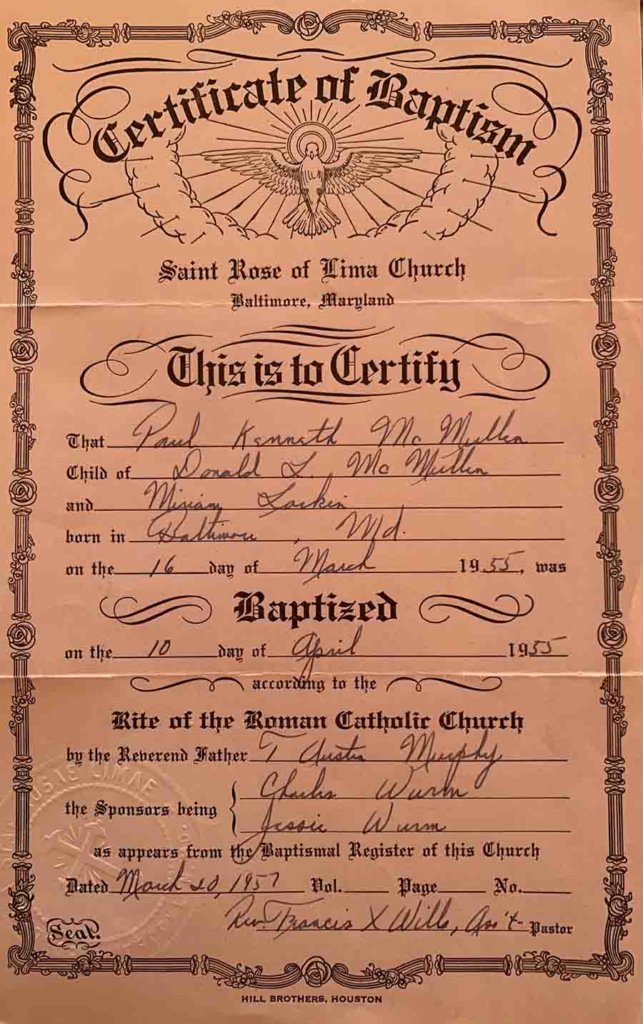 Certificate of Baptism
Saint Rose of Lima Church
Baltimore, Maryland
This is to Certify
That Paul Kenneth Mc Mullen
Child of Donald L. Mc Mullen
and Miriam Larkin
born in Baltimore, Md.
on the 16 day of March 1955, was
Baptized
on the 10 day of April 1955
according to the
Rite of the Roman Catholic Church
by the Reverend Father T Austin Murphy
the Sponsors being Charles Wurm
Jessie Wurm
as appears from the Baptismal Register of this Church
Dated March 20, 1957 Vol. Page No.
Rev. Francis X Wills, Ass't Pastor
Seal.
LIMAE
HILL BROTHERS, HOUSTON